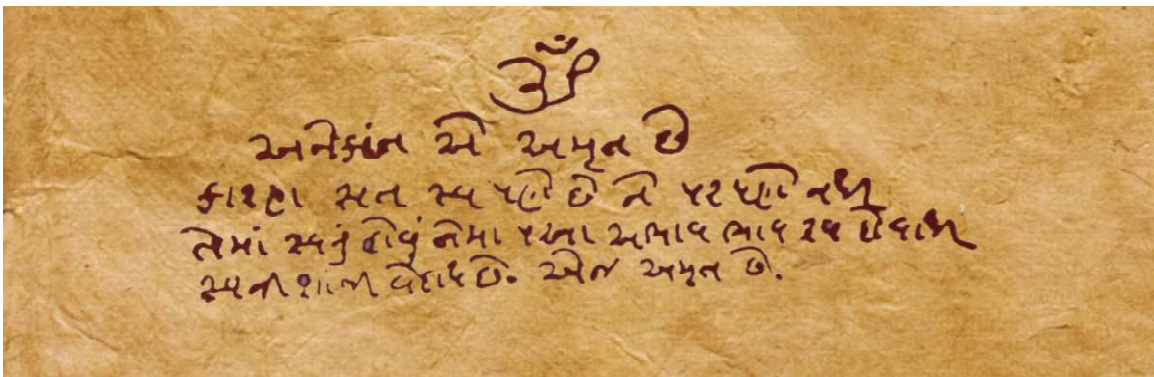 ૐ
અનેકાંત એ અમૃત છે
કારણ સત સ્વ પણે છે ને પર પણે નથી
તેમાં સ્વનું હોવું તેમા પરના અભાવ ભાવ રૂપ હોવાથી
સ્વની શાન્તી વેદાય છે. એજ અમૃત છે.